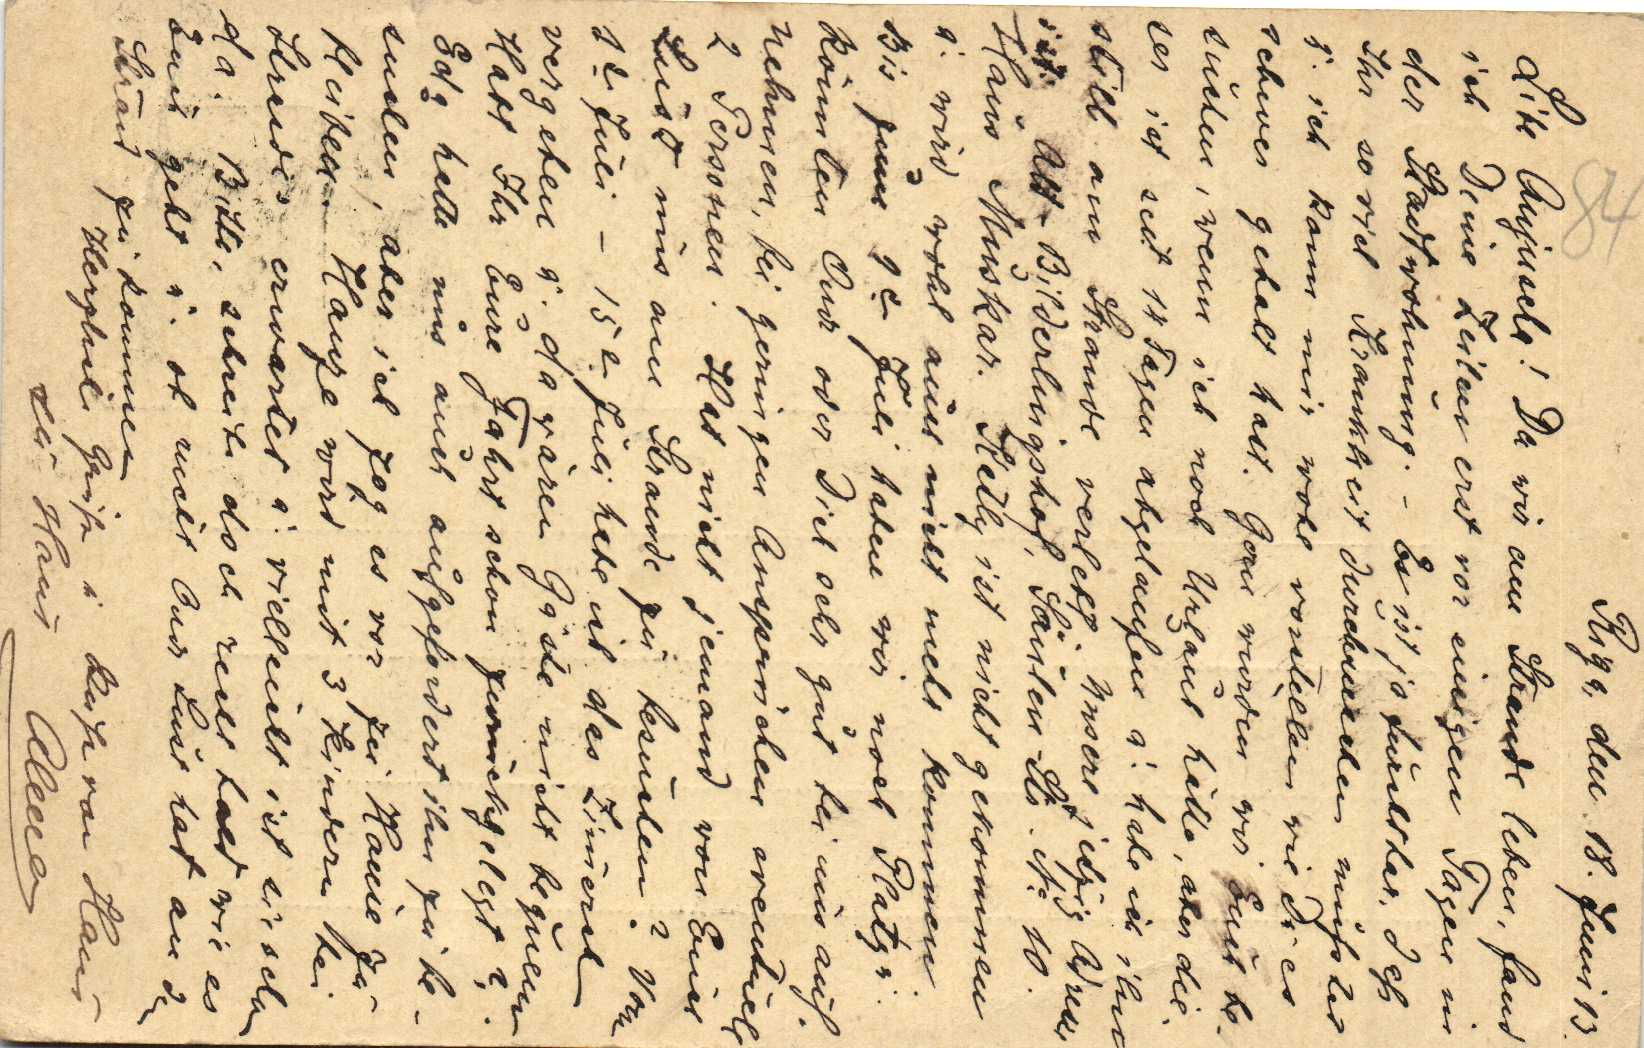 84
Riga, den 18. Juni 13.
Liebe Auguste! Da wir am Strande leben, fand
ich Deine Zeilen erst vor einigen Tagen in
der Stadtwohnung. - Es ist ja furchtbar, daß
Ihr so viel Krankheit durchmachen müßtet
u. ich kann mir wohl vorstellen wie Du es
schwer gehabt hast. Gern würden wir Euch be-
suchen, wenn ich noch Urlaub hätte, aber die-
ser ist seit 14 Tagen abgelaufen u. habe ich ihn
still am Strande verlebt. Unsere jetzige Adresse
ist: Alt-Bilderlingshof, Säulen Str. № 10.
Haus Muskar. Hedly ist nicht gekommen
u. wird wohl auch nicht mehr kommen
Bis zum 9. Juli haben wir noch Platz.
Könnten Curt oder Dick sehr gut bei uns auf-
nehmen, bei geringen Ansprüchen eventuell
2 Personen. Hat nicht jemand von Euch
Lust uns am Strande zu besuchen? Vom
12. Juli - 15. Juli habe ich das Zimmer
vergeben u. da wären Gäste nicht bequem
Habt Ihr Eure Fahrt schon zurückgelegt?
Edg. hatte uns auch aufgefordert ihn zu be-
suchen, aber ich zog es vor zu Hause zu
bleiben. Hauze wird mit 3 Kindern bei
erwartet u. vielleicht ist sie schon
da. Bitte, schreibe doch recht bald wie es
Euch geht u. ob nicht Curt Lust hat an d.
Strand zu kommen
Herzliche Grüße u. Küsse von Haus
zu Haus Alma